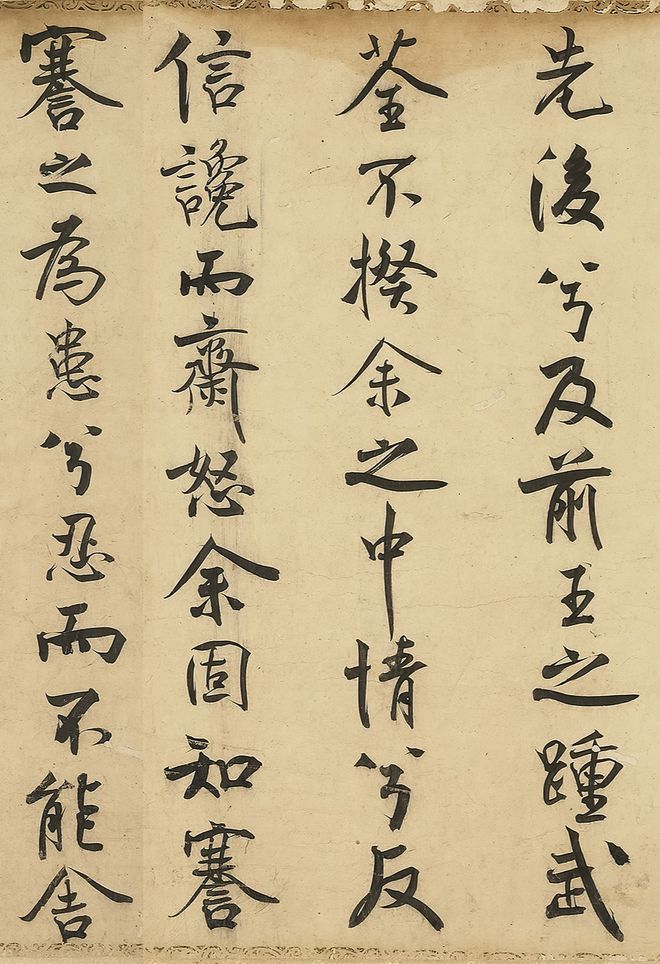 先後兮及前王之踵武
荃不揆余之中情兮反
信讒而齋怒余固知謇
謇之為患兮忍而不能舍